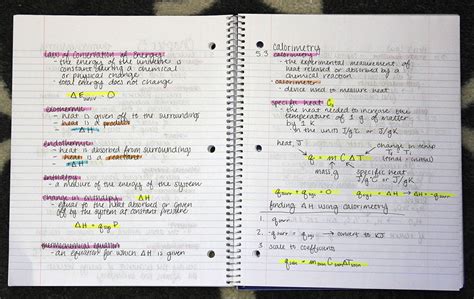 Law of Conservation of Energy
- the energy of the universe is
constant during a chemical
or physical change
- total energy does not change
ΔE = 0
exothermic
- heat is given off to the surroundings
- heat is a product
- ΔH
endothermic
- heat is absorbed from surroundings
- heat is a reactant
+ ΔH
enthalpy
- a measure of the energy of the system
change in enthalpy, ΔH
- equal to the heat absorbed or given
off by the system at constant pressure
ΔH = q P
thermochemical equation
- an equation for which ΔH is given
5.3
calorimetry
- the experimental measurement of
heat released or absorbed by a
chemical reaction
calorimeter
- device used to measure heat
specific heat, Cs
- the heat needed to increase the
temperature of 1 g of matter
by 1 K
- in the units J/g°C or J/gK
heat, J
change in temp
q = m C ΔT
(final - initial)
mass, g
specific heat
J/g°C or J/gK
finding ΔH using calorimetry
1.
2.
→ convert to KJ
3. scale to coefficients